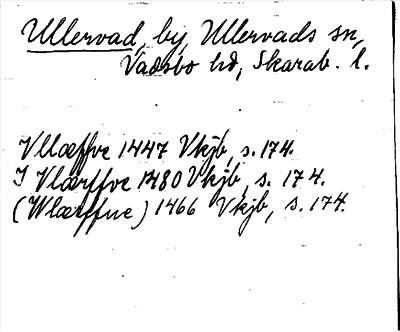 Ullervad, by, Ullervads sn,
Vadsbo hd, Skarab. l.
Vllæffve 1447 Vkjb, s. 174.
I Vlærffve 1480 Vkjb, s. 174.
(Wlærffue) 1466 Vkjb, s. 174.